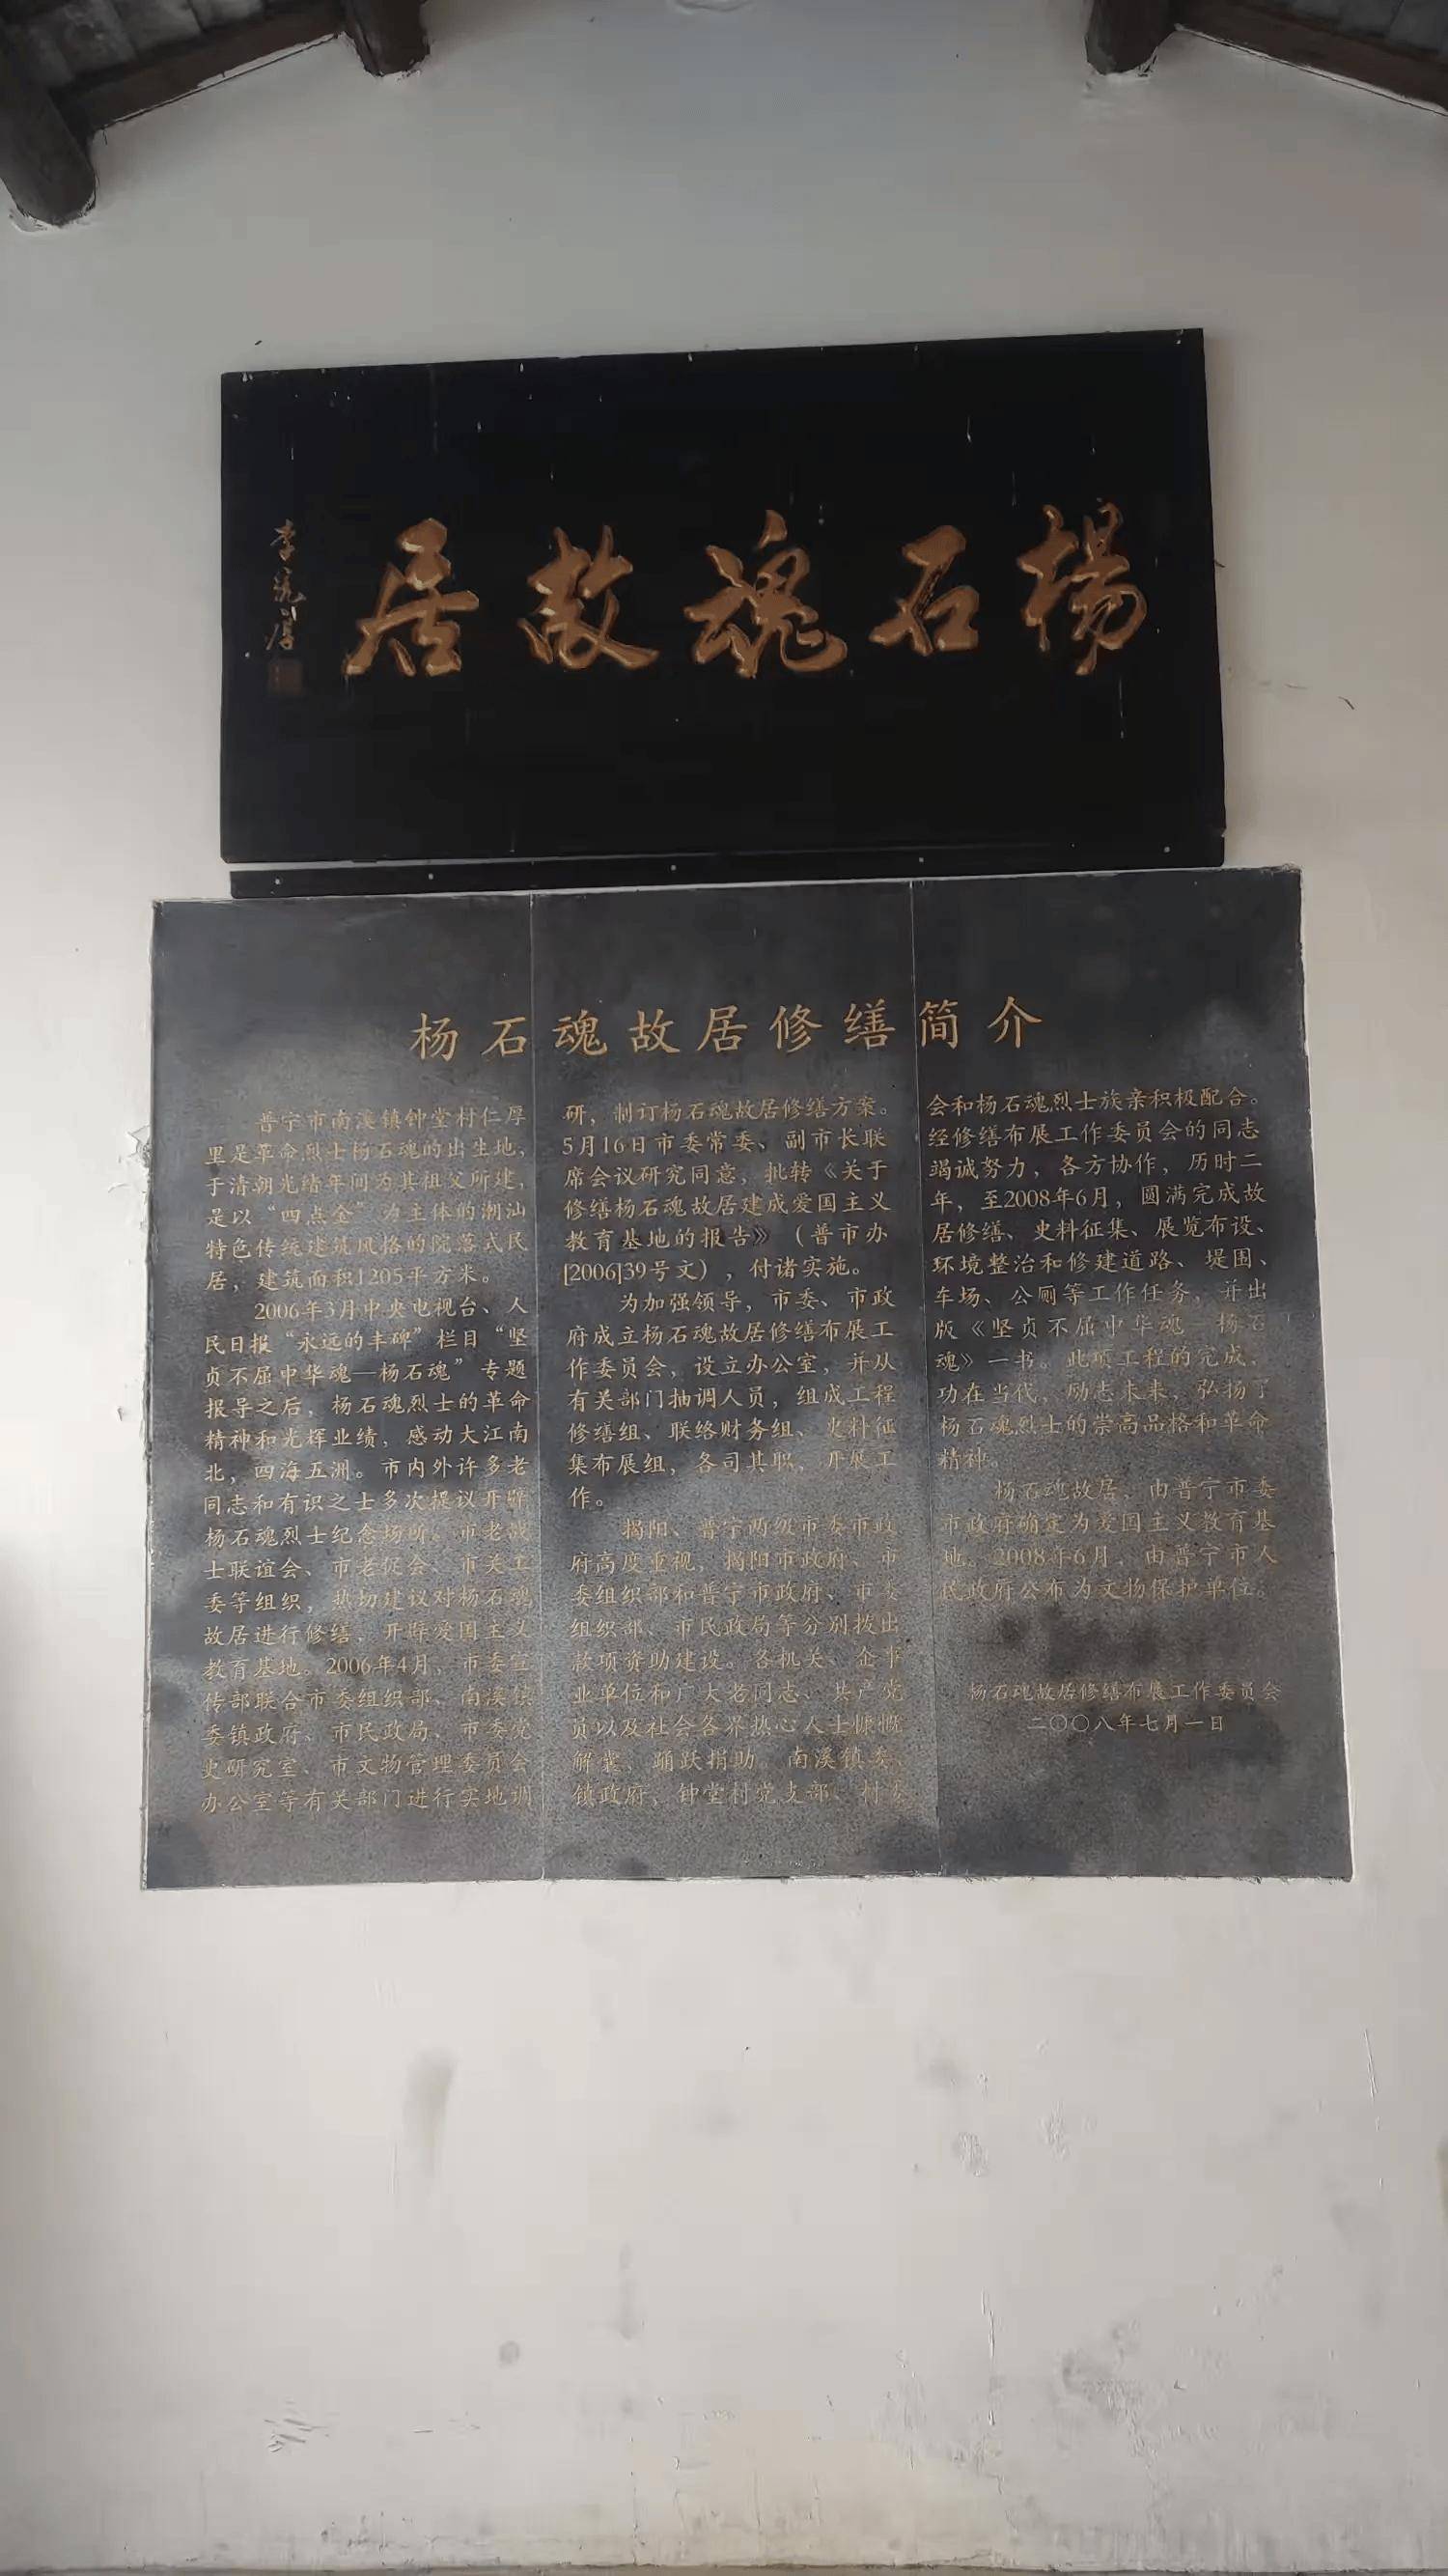 楊石魂故居
杨石魂故居修缮简介
普宁市南溪镇钟堂村仁厚
里是革命烈士杨石魂的出生地，
于清朝光绪年间为其祖父所建，
是以“四点金”为主体的潮汕
特色传统建筑风格的院落式民
居，建筑面积1205平方米。
2006年3月中央电视台、人
民日报“永远的丰碑”栏目“坚
贞不屈中华魂—杨石魂”专题
报导之后，杨石魂烈士的革命
精神和光辉业绩，感动大江南
北，四海五洲。市内外许多老
同志和有识之士多次提议开辟
杨石魂烈士纪念场所。市老战
士联谊会、市老促会、市关工
委等组织，热切建议对杨石魂
故居进行修缮，开辟爱国主义
教育基地。2006年4月，市委宣
传部联合市委组织部、南溪镇
委镇政府、市民政局、市委党
史研究室、市文物管理委员会
办公室等有关部门进行实地调
研，制订杨石魂故居修缮方案。
5月16日市委常委、副市长联
席会议研究同意，批转《关于
修缮杨石魂故居建成爱国主义
教育基地的报告》（普市办
[2006]39号文），付诸实施。
为加强领导，市委、市政
府成立杨石魂故居修缮布展工
作委员会，设立办公室，并从
有关部门抽调人员，组成工程
修缮组、联络财务组、史料征
集布展组，各司其职，开展工
作。
揭阳、普宁两级市委市政
府高度重视，揭阳市政府、市
委组织部和普宁市政府、市委
组织部、市民政局等分别拨出
款项资助建设。各机关、企事
业单位和广大老同志、共产党
员以及社会各界热心人士慷慨
解囊，踊跃捐助。南溪镇委、
镇政府，钟堂村党支部、村委
会和杨石魂烈士族亲积极配合。
经修缮布展工作委员会的同志
竭诚努力，各方协作，历时二
年，至2008年6月，圆满完成故
居修缮、史料征集、展览布设、
环境整治和修建道路、堤围、
车场、公厕等工作任务，并出
版《坚贞不屈中华魂—杨石
魂》一书。此项工程的完成，
功在当代，励志未来，弘扬了
杨石魂烈士的崇高品格和革命
精神。
杨石魂故居，由普宁市委
市政府确定为爱国主义教育基
地。2008年6月，由普宁市人
民政府公布为文物保护单位。
杨石魂故居修缮布展工作委员会
二〇〇八年七月一日